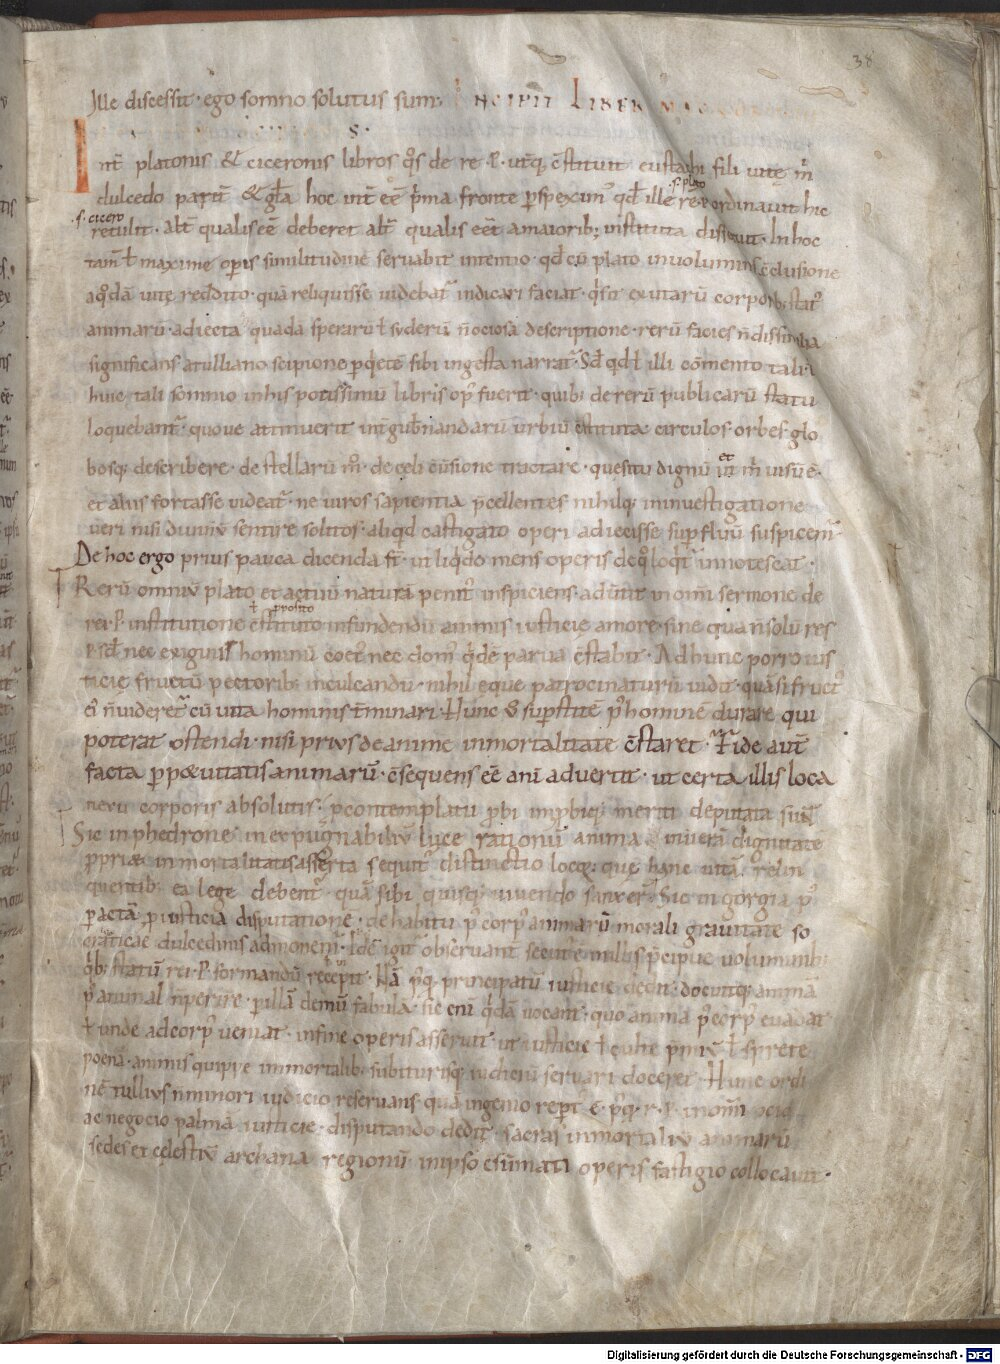 38
Ille discessit · ego somno solutus sum · INCIPIT LIBER
Int̄ platonis & ciceronis libros q̊s de re · P · ut̄q; c̄stituit eustachi fili uitę m̄
dulcedo parit̄ & gl̄a hoc int̄ eē p̄ma fronte p̱spexim᾿ qđ ille rē P ordinauit hic
·s· plato
·s· cicero
retulit · alt̄ qualis eē deberet alt̄ qualis eēt amaiorib; instituta disseruit · In hoc
tam̄ ł maxime op̱is similitudinē seruabit intentio · qđ cū plato inuoluminis c̄clusione
aq̊dā uitę reddito · quā reliquisse uidebat᾿ indicari faciat · q̄ sit exutarū corporib; stat᾿
animarū · adiecta quadā sperarū ł syderū n̄ociosa descriptione · rerū facies n̄dissimilia
significans atulliano scipione p̱ quietē sibi ingesta narrat᾿ · Sđ qđ ł illi cōmento tali ł
huic tali somnio inhis potissimū libris op᾿ fuerit · quib; dererū publicarū statu
loquebant᾿ · quoue attinuerit int̄ gub̄nandarū urbiū c̄stituta circulos · orbes glo
bosq; describere · de stellarū m̊ · de cęli c̄uersione tractare · quęsitu dignū ut m̄ uisū ē ·
et
et aliis fortasse uideat᾿ · ne uiros sapientia p̄cellentes nihilq; ininuestigatione
ueri nisi diuinū sentire solitos · aliqđ castigato operi adiecisse sup̱fluū suspicem᾿
De hoc ergo prius pauca dicenda st̄ · ut liq̇do mens operis deq̊ loq̇m᾿ innotescat ·
Rerū omniū plato et actuū naturā penit᾿ inspiciens · aduertit in omī sermone de
ł pposito
rei · P · institutione c̄stituto infundendū animis iusticię amorē · sine qua n̄ solū res
P · sed nec exiguus hominū coet᾿ nec dom᾿ q̇dē parua c̄stabit · Ad hunc porro ius
ticię affectū pectorib; inculcandū · nihil ęque patrocinaturū uidit · quā si fruct᾿
ei᾿ n̄ uideret᾿ cū uita hominis t̄minari · Hunc ū sup̱stitē p᾿ hominē durare qui
poterat ostendi · nisi prius de anime inmortalitate c̄staret · Fide aut̄
facta p̱petuitatis animarū · c̄sequens eē animaduertit · ut certa illis loca
nexu corporis absolutis · p̱ contemplatu p̱bi inp̱biq; meriti deputata sint
Sic in phedrone · inexpugnabiliū luce rationū anima inuerā dignitatē
p̱priæ inmortalitatis asserta sequit᾿ distinctio locoꝝ · que hanc uitā relin
quentib; ea lege debent᾿ quā sibi quisq; uiuendo sanxerit · Sic in gorgia p᾿
p̱actā p̱ iusticia disputationē · de habitu p᾿ corp᾿ animarū morali grauitate so
craticae dulcedinis admonem᾿ · Idē igit᾿ obseruant᾿ secutus ē inillis p̄cipue uoluminib;
q̇b; statū rei · P · formandū recepit · Nā p᾿q; principatū iusticię dedit · docuitq; animā
p᾿ animal n̄ perire · p̱ illā demū fabulā · sic eni q̇dā uocant · quo anima p᾿ corp᾿ euadat
ł unde ad corp᾿ ueniat · infine operis asseruit · ut iusticię ł cultę p̄miū ł spretę
poenā · animis quippe inmortalib; subiturisq; iudiciū seruari doceret · Hunc ordi
nē tullius n̄ minori iudicio reseruans quā ingenio rep̱t᾿ ē · p᾿q; · r · P · inomī ocio
ac negocio palmā iusticię · disputando dedit · sacras inmortaliū animarū
sedes et cęlestiū archana regionū inipso c̄sumati operis fastigio collocauit ·
Digitalisierung gefördert durch die Deutsche Forschungsgemeinschaft - DFG